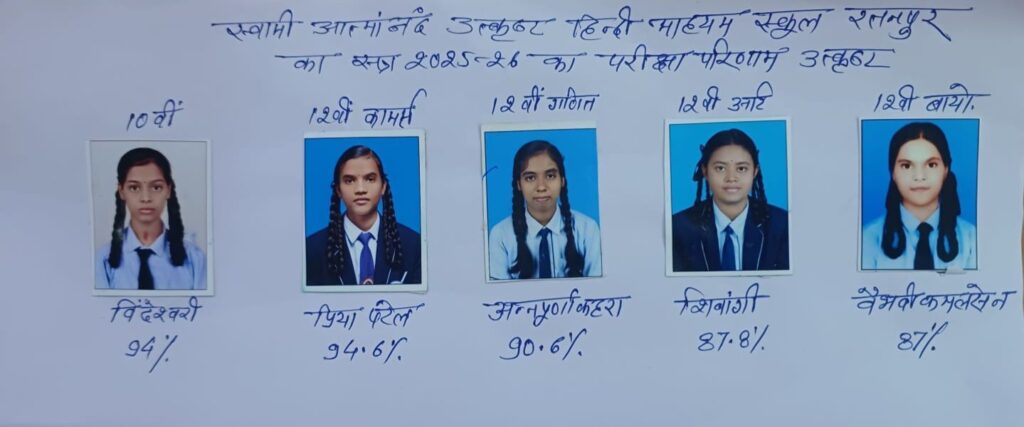 स्वामी आत्मांनंद उत्कृष्ट हिन्दी माध्यम स्कूल रतनपुर
का सत्र 2025-26 का परीक्षा परिणाम उत्कृष्ट
10वीं 12वीं कामर्स 12वीं गणित 12वी आर्ट 12वी बायो.
विंदेश्वरी प्रिया पटेल अन्नपूर्णा कहरा शिवांगी वैभवी कमलसेन
94% 94.6% 90.6% 87.8% 87%